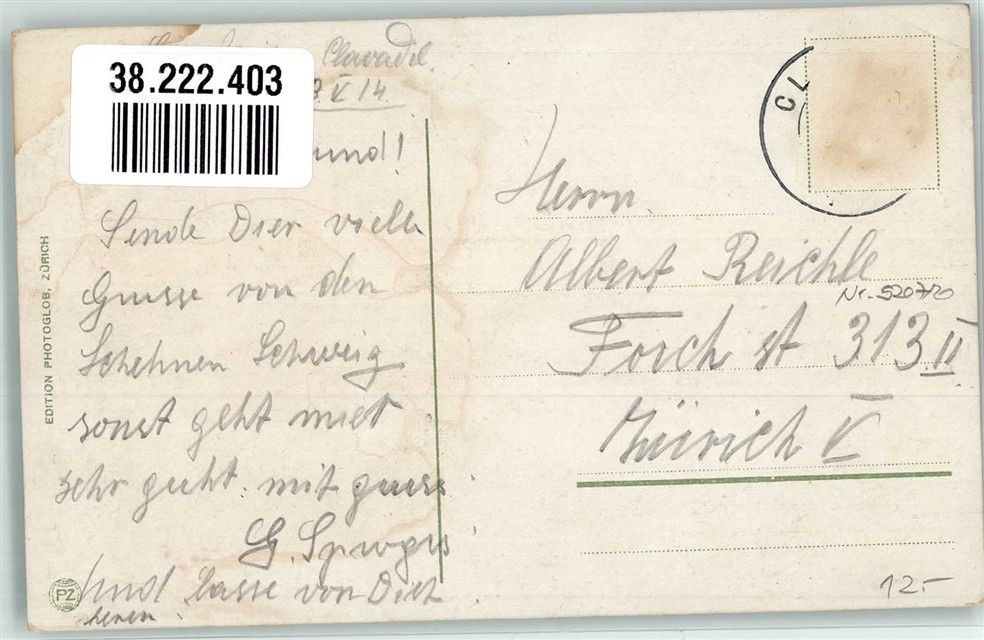 38.222.403
Clavadel
V 14
Sende Dier viele
Grüsse von den
Schehnen Schweiz
sonst geht mier
sehr guht. mit gruss
G.
Und lasse von Diet
heren
EDITION PHOTOGLOB, ZÜRICH
PZ
CL
Herrn
Albert Reichle
Nr. 520770
Forch st 313 II
Züirich V
12.-